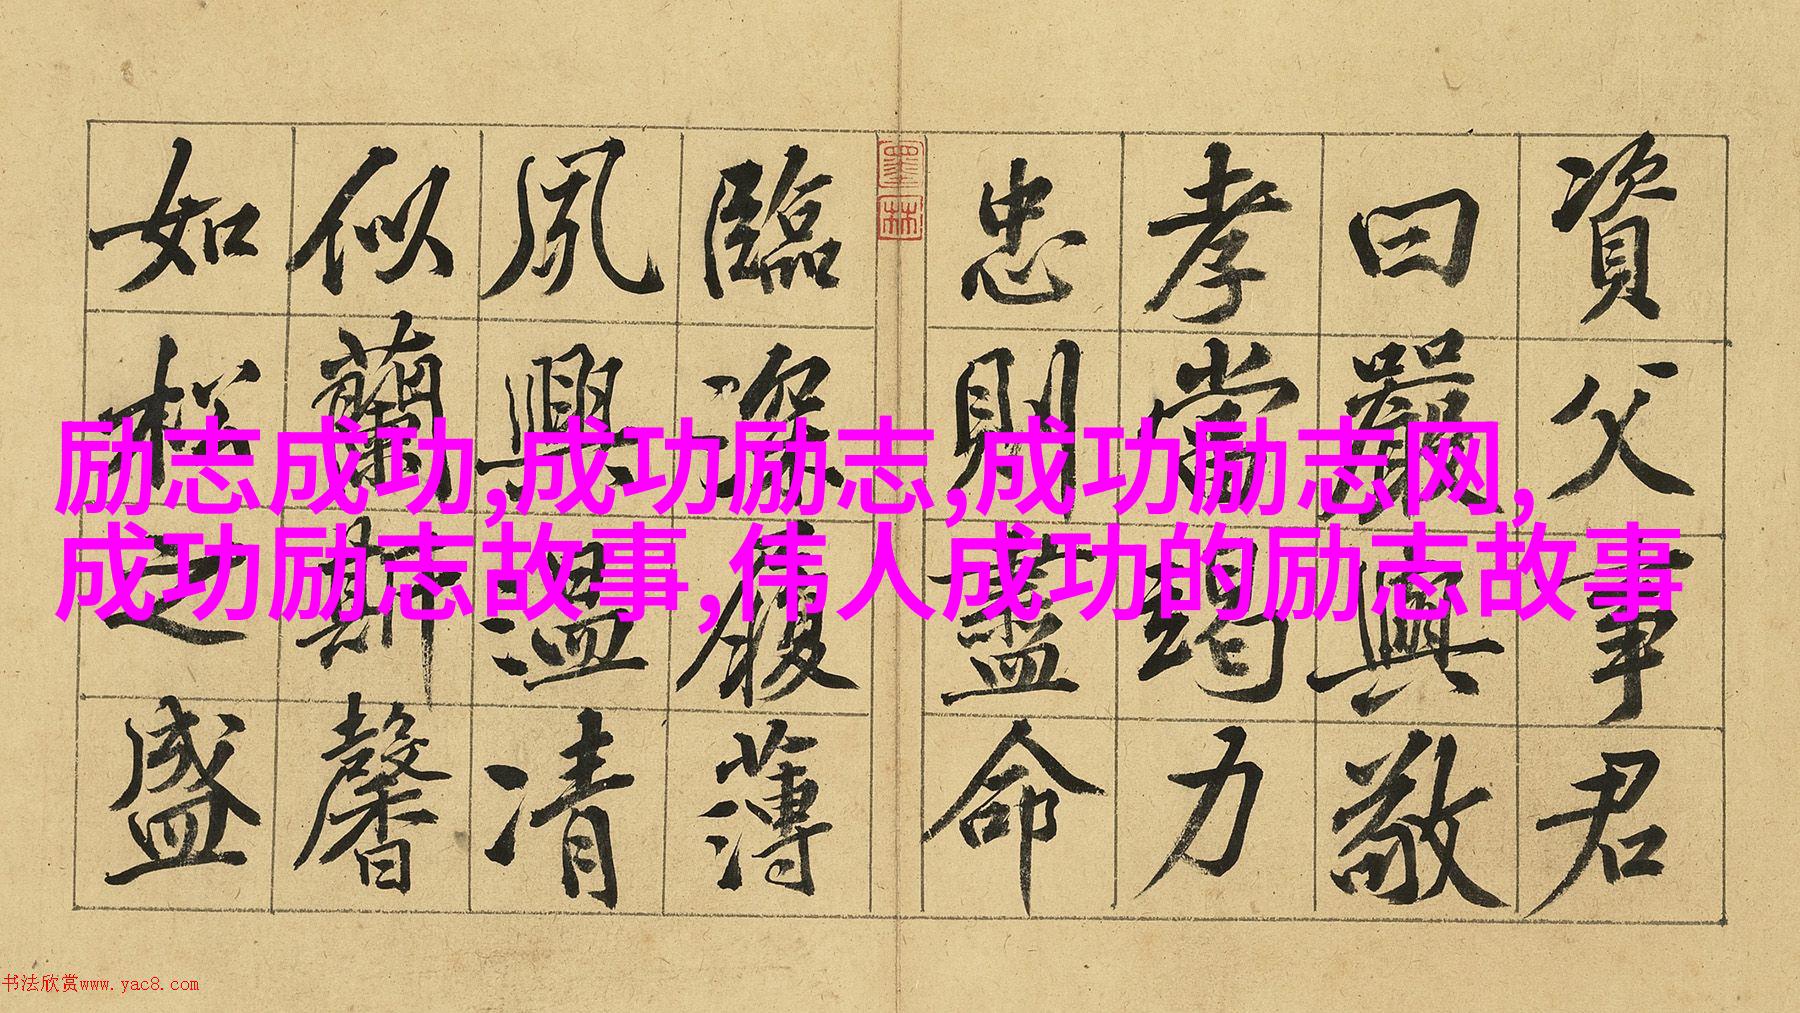 資父事君
曰嚴與敬
孝當竭力
忠則盡命
墨林
臨深履薄
夙興溫凊
似蘭斯馨
如松之盛
励志成功,成功励志,成功励志网,
成功励志故事,伟人成功的励志故事
书法欣赏www.yac8.com